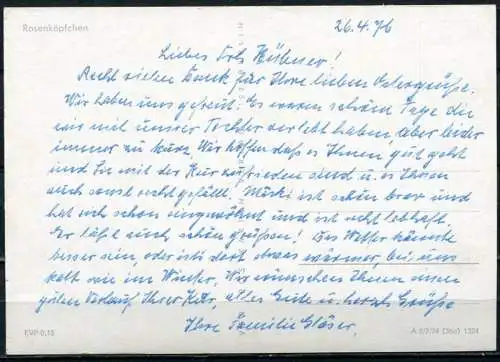 Rosenköpfchen
26.4.76
Liebes Frl. Hübner!
Recht vielen Dank für Ihre lieben Ostergrüße.
Wir haben uns gefreut. Es waren schöne Tage die
wir mit unsrer Tochter verlebt haben, aber leider
immer zu kurz. Wir hoffen daß es Ihnen gut geht
und Sie mit der Kur zufrieden sind u. es Ihnen
auch sonst recht gefällt. ist schön brav und
hat sich schon eingewöhnt und ist recht lebhaft.
Er läßt auch schön grüßen! Das Wetter könnte
besser sein, oder ist's dort etwas wärmer, bei uns
kalt wie im Winter. Wir wünschen Ihnen einen
guten Verlauf Ihrer Kur, alles Gute u. herzl. Grüße
Ihre Familie Gläser.
EVP 0,15
A 1324